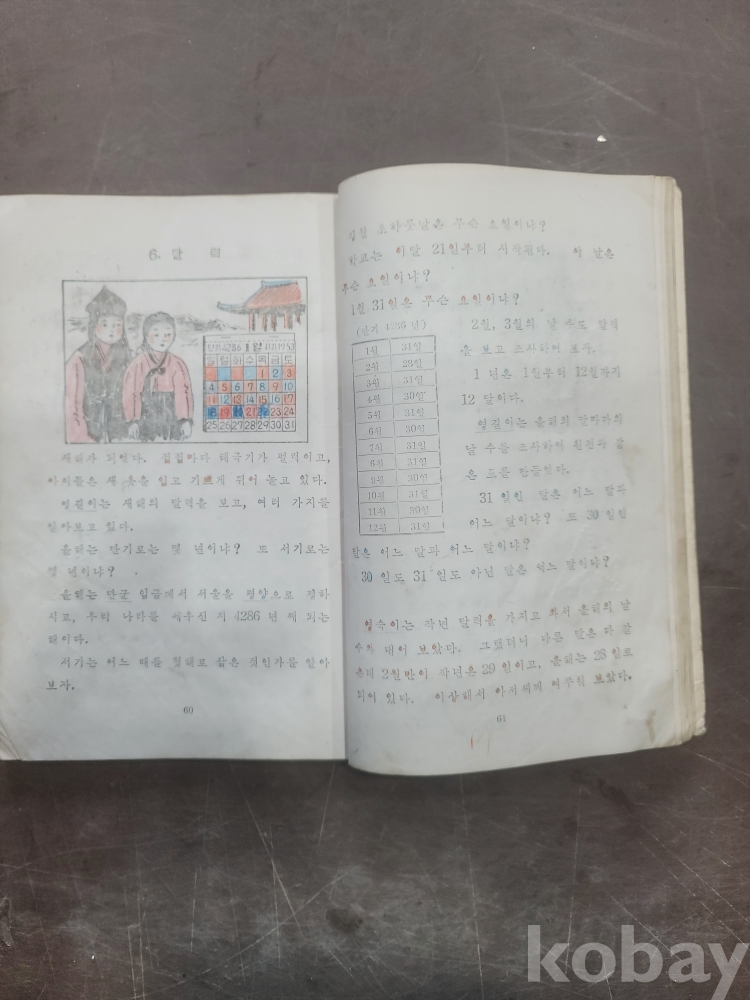 6. 달 력
단기4286 1월 서기1953
일 월 화 수 목 금 토
1 2 3
4 5 6 7 8 9 10
11 12 13 14 15 16 17
18 19 21 23 24
25 26 27 28 29 30 31
새해가 되었다. 집집마다 태극기가 펄럭이고,
아이들은 새 옷을 입고 기쁘게 뛰어 놀고 있다.
영길이는 새해의 달력을 보고, 여러 가지를
알아보고 있다.
올해는 단기로는 몇 년이냐? 또 서기로는
몇 년이냐?
올해는 단군 임금께서 서울을 평양으로 정하
시고, 우리 나라를 세우신 지 4286 년 째 되는
해이다.
서기는 어느 때를 첫해로 삼은 것인가를 알아
보자.
60
초하룻날은 무슨 요일이냐?
학교는 이달 21일부터 시작된다. 이 날은
무슨 요일이냐?
1월 31일은 무슨 요일이냐?
(단기 4286 년)
1월 31일
2월 28일
3월 31일
4월 30일
5월 31일
6월 30일
7월 31일
8월 31일
9월 30일
10월 31일
11월 30일
12월 31일
2월, 3월의 날 수도 달력
을 보고 조사하여 보자.
1 년은 1월부터 12월까지
12 달이다.
영길이는 올해의 달마다의
날 수를 조사하여 왼편과 같
은 표를 만들었다.
31 일인 달은 어느 달과
어느 달이냐? 또 30 일인
달은 어느 달과 어느 달이냐?
30 일도 31 일도 아닌 달은 어느 달이냐?
영숙이는 작년 달력을 가지고 와서 올해의 날
수와 대어 보았다. 그랬더니 다른 달은 다 같
은데 2월만이 작년은 29 일이고, 올해는 28 일로
되어 있다. 이상해서 아저씨께 여쭈워 보았다.
61
kobay